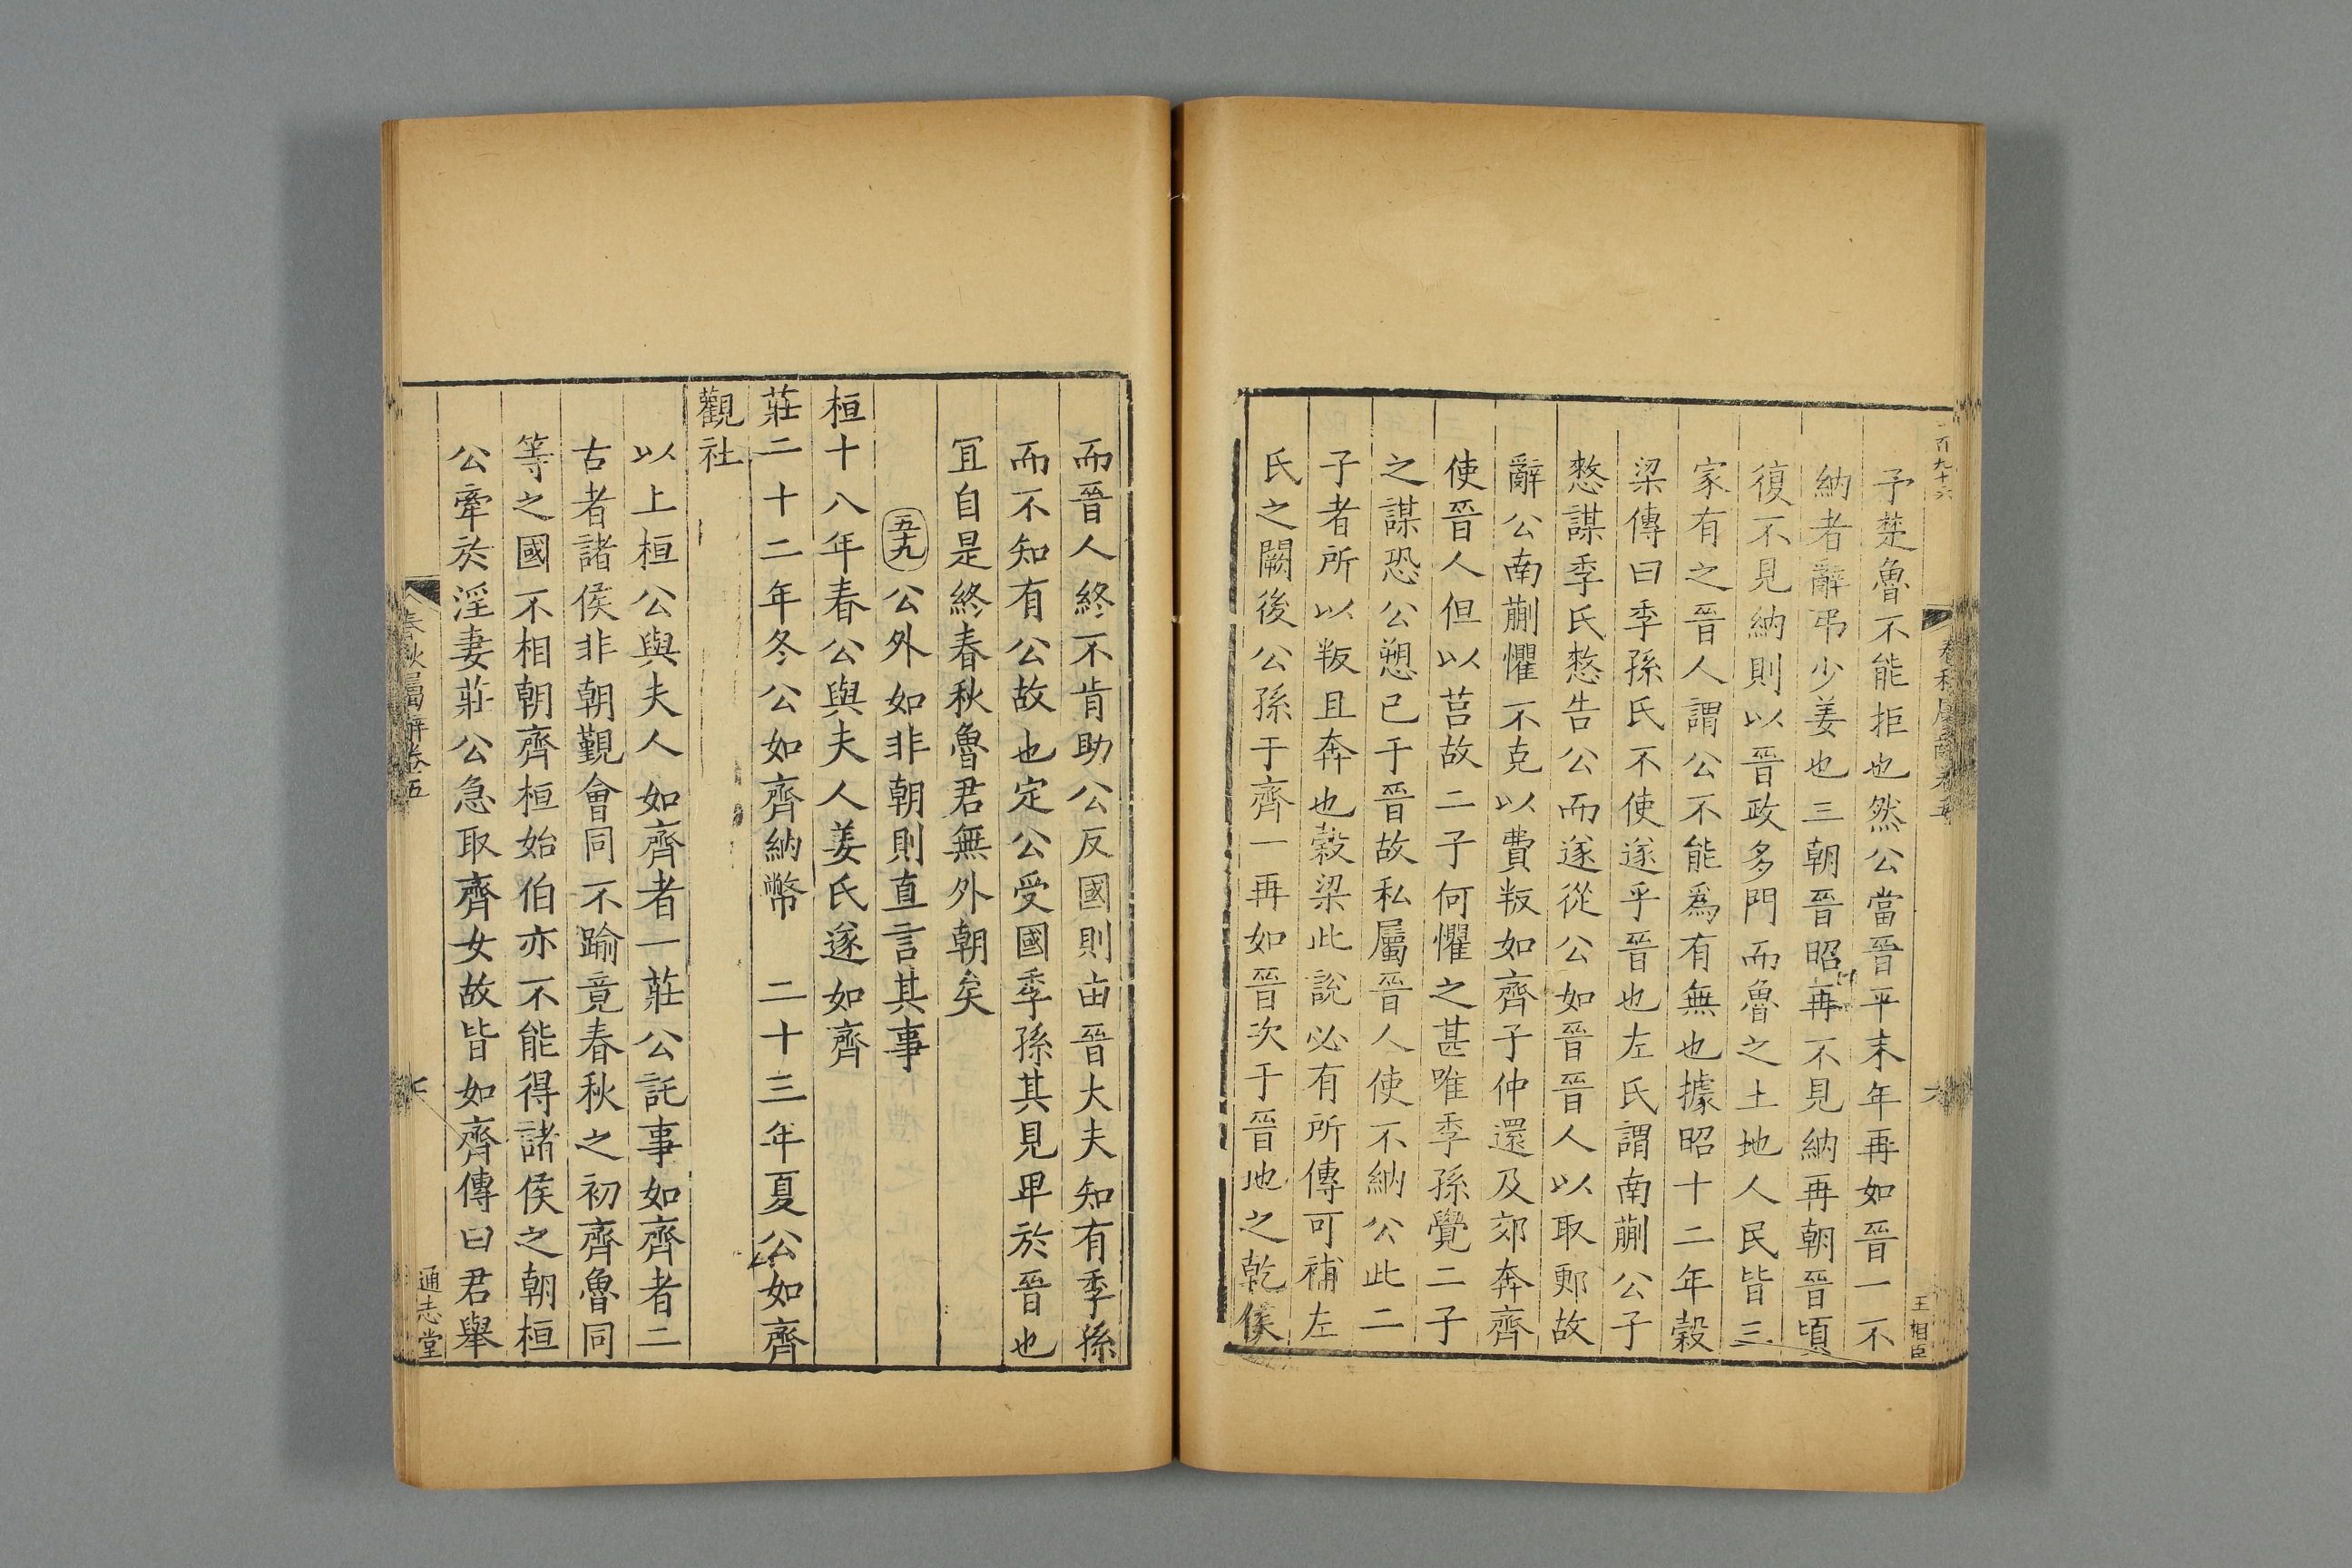 一百九十六
春秋屬辭卷五
六
王相臣
予楚魯不能拒也然公當晉平末年再如晉一不
納者辭弔少姜也三朝晉昭再不見納再朝晉頃
復不見納則以晉政多門而魯之土地人民皆三
家有之晉人謂公不能爲有無也據昭十二年穀
梁傳曰季孫氏不使遂乎晉也左氏謂南蒯公子
憗謀季氏憗告公而遂從公如晉晉人以取鄆故
辭公南蒯懼不克以費叛如齊子仲還及郊奔齊
使晉人但以莒故二子何懼之甚唯季孫覺二子
之謀恐公愬已于晉故私屬晉人使不納公此二
子者所以叛且奔也穀梁此說必有所傳可補左
氏之闕後公孫于齊一再如晉次于晉地之乾侯
而晉人終不肯助公反國則由晉大夫知有季孫
而不知有公故也定公受國季孫其見卑於晉也
冝自是終春秋魯君無外朝矣
五九公外如非朝則直言其事
桓十八年春公與夫人姜氏遂如齊
莊二十二年冬公如齊納幣 二十三年夏公如齊
觀社
以上桓公與夫人如齊者一莊公託事如齊者二
古者諸侯非朝覲會同不踰竟春秋之初齊魯同
等之國不相朝齊桓始伯亦不能得諸侯之朝桓
公牽於淫妻莊公急取齊女故皆如齊傳曰君舉
春秋屬辭卷五
七
通志堂